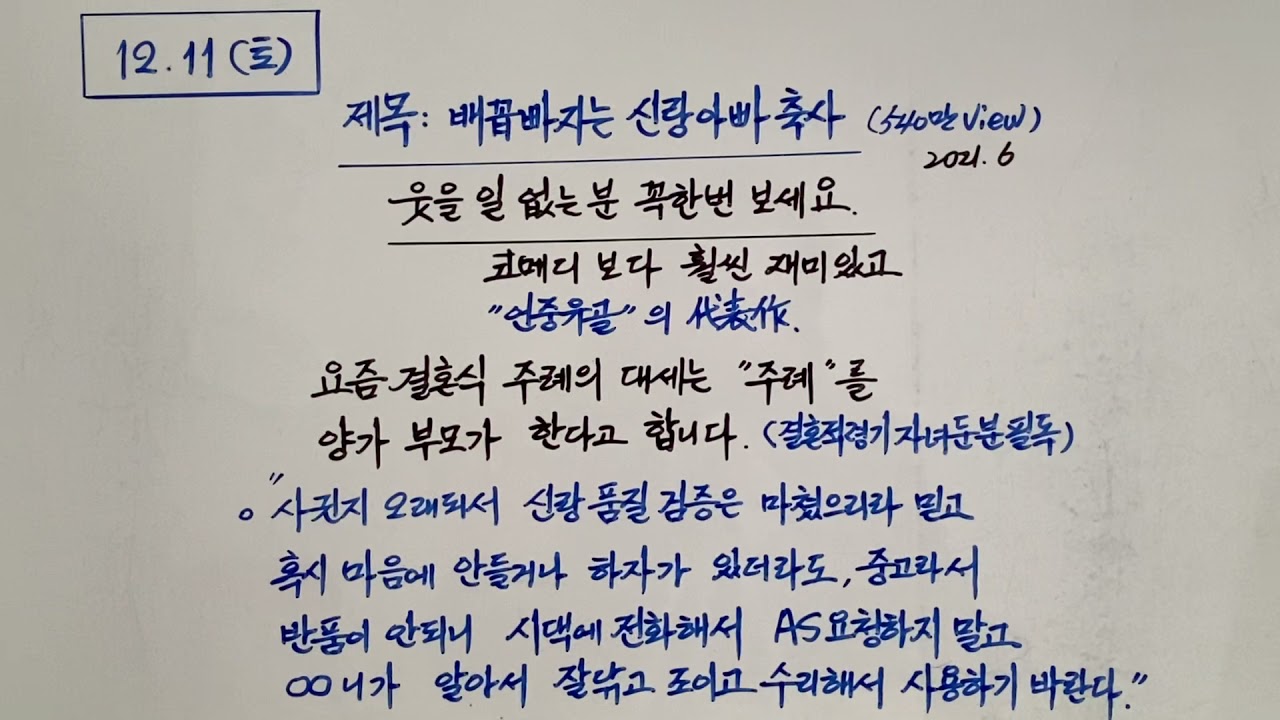 12.11(토)
제목: 배꼽빠지는 신랑아빠 축사 (540만 View)
2021. 6
웃을 일 없는분 꼭한번 보세요.
코메디 보다 훨씬 재미있고
"언중유골"의 代表作.
요즘 결혼식 주례의 대세는 "주례"를
양가 부모가 한다고 합니다. (결혼적령기자녀둔분필독)
○ "사귄지 오래되서 신랑품질검증은 마쳤으리라 믿고
혹시 마음에 안들거나 하자가 있더라도, 중고라서
반품이 안되니 시댁에 전화해서 AS요청하지 말고
○○니가 알아서 잘닦고 조이고 수리해서 사용하기 바란다."